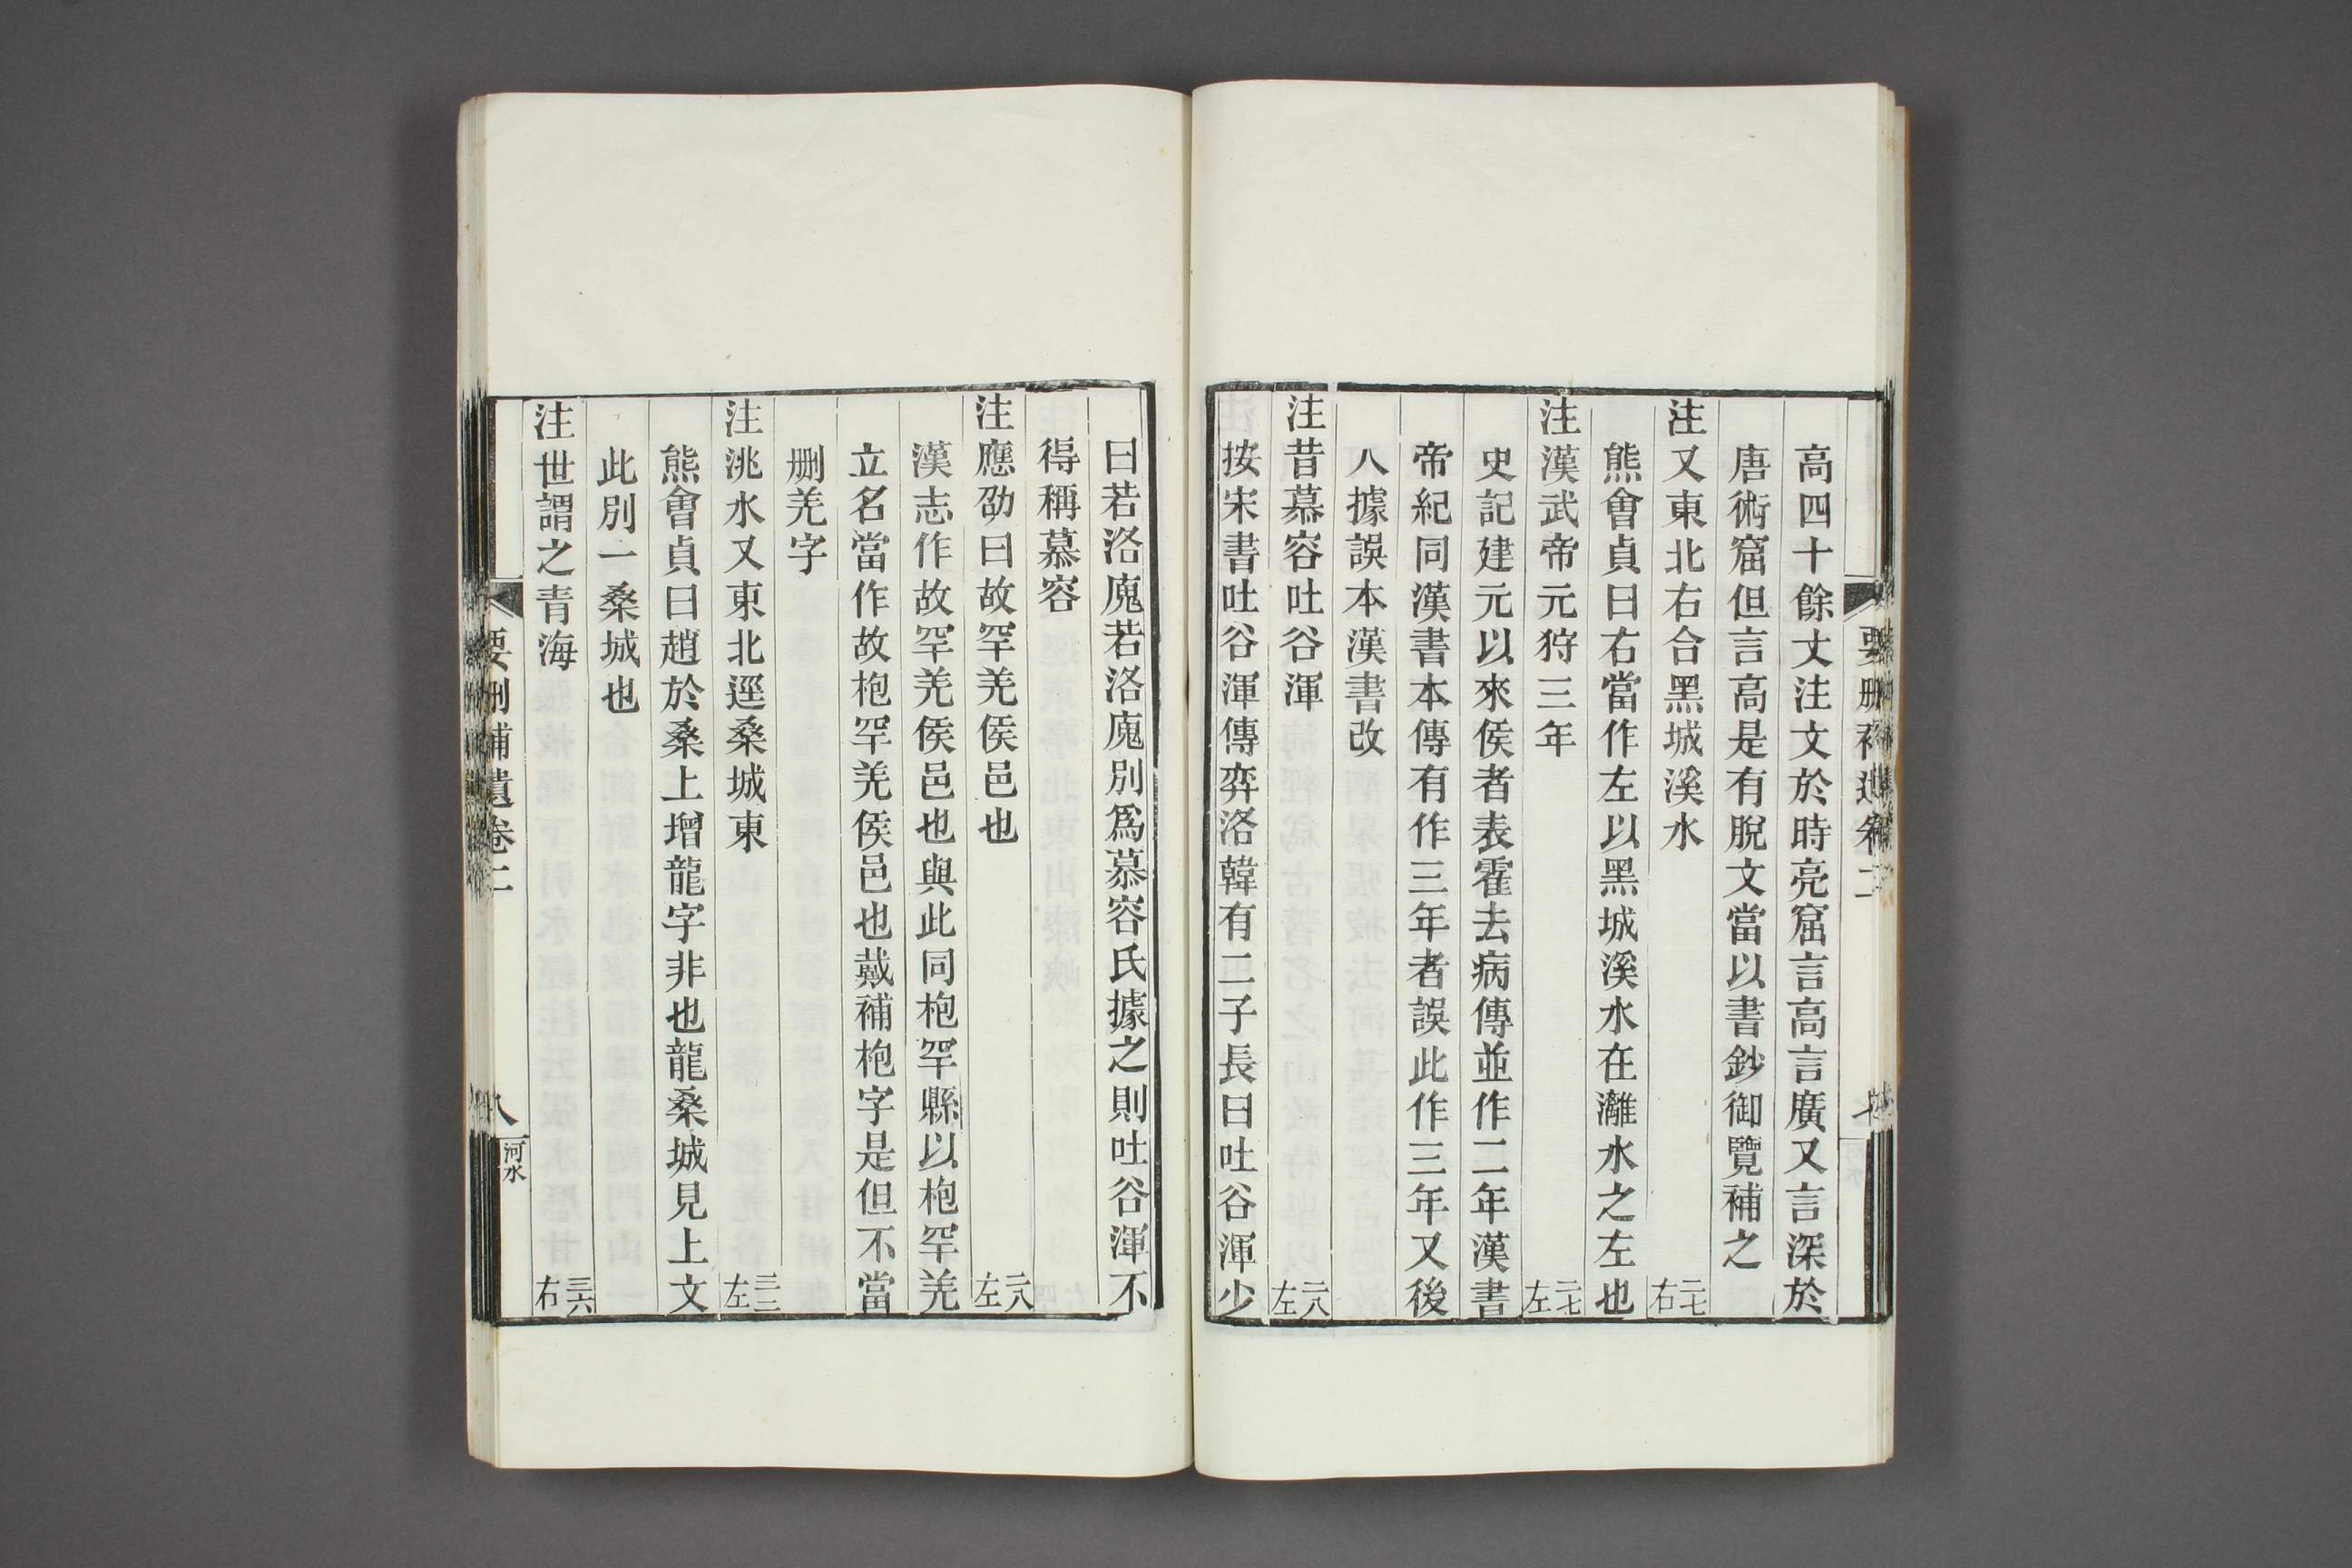 高四十餘丈注文於時亮窟言高言廣又言深於
唐術窟但言高是有脫文當以書鈔御覽補之
注又東北右合黑城溪水 二七右
熊會貞曰右當作左以黑城溪水在灕水之左也
注漢武帝元狩三年 二七左
史記建元以來侯者表霍去病傳並作二年漢書
帝紀同漢書本傳有作三年者誤此作三年又後
人據誤本漢書改
注昔慕容吐谷渾 二八左
按宋書吐谷渾傳弈洛韓有二子長曰吐谷渾少
曰若洛廆若洛廆別爲慕容氏據之則吐谷渾不
得稱慕容
注應劭曰故罕羌侯邑也 二八左
漢志作故罕羌侯邑也與此同枹罕縣以枹罕羌
立名當作故枹罕羌侯邑也戴補枹字是但不當
刪羌字
注洮水又東北逕桑城東 三二左
熊會貞曰趙於桑上增龍字非也龍桑城見上文
此別一桑城也
注世謂之青海 三六右
要刪補遺卷二
八
河水